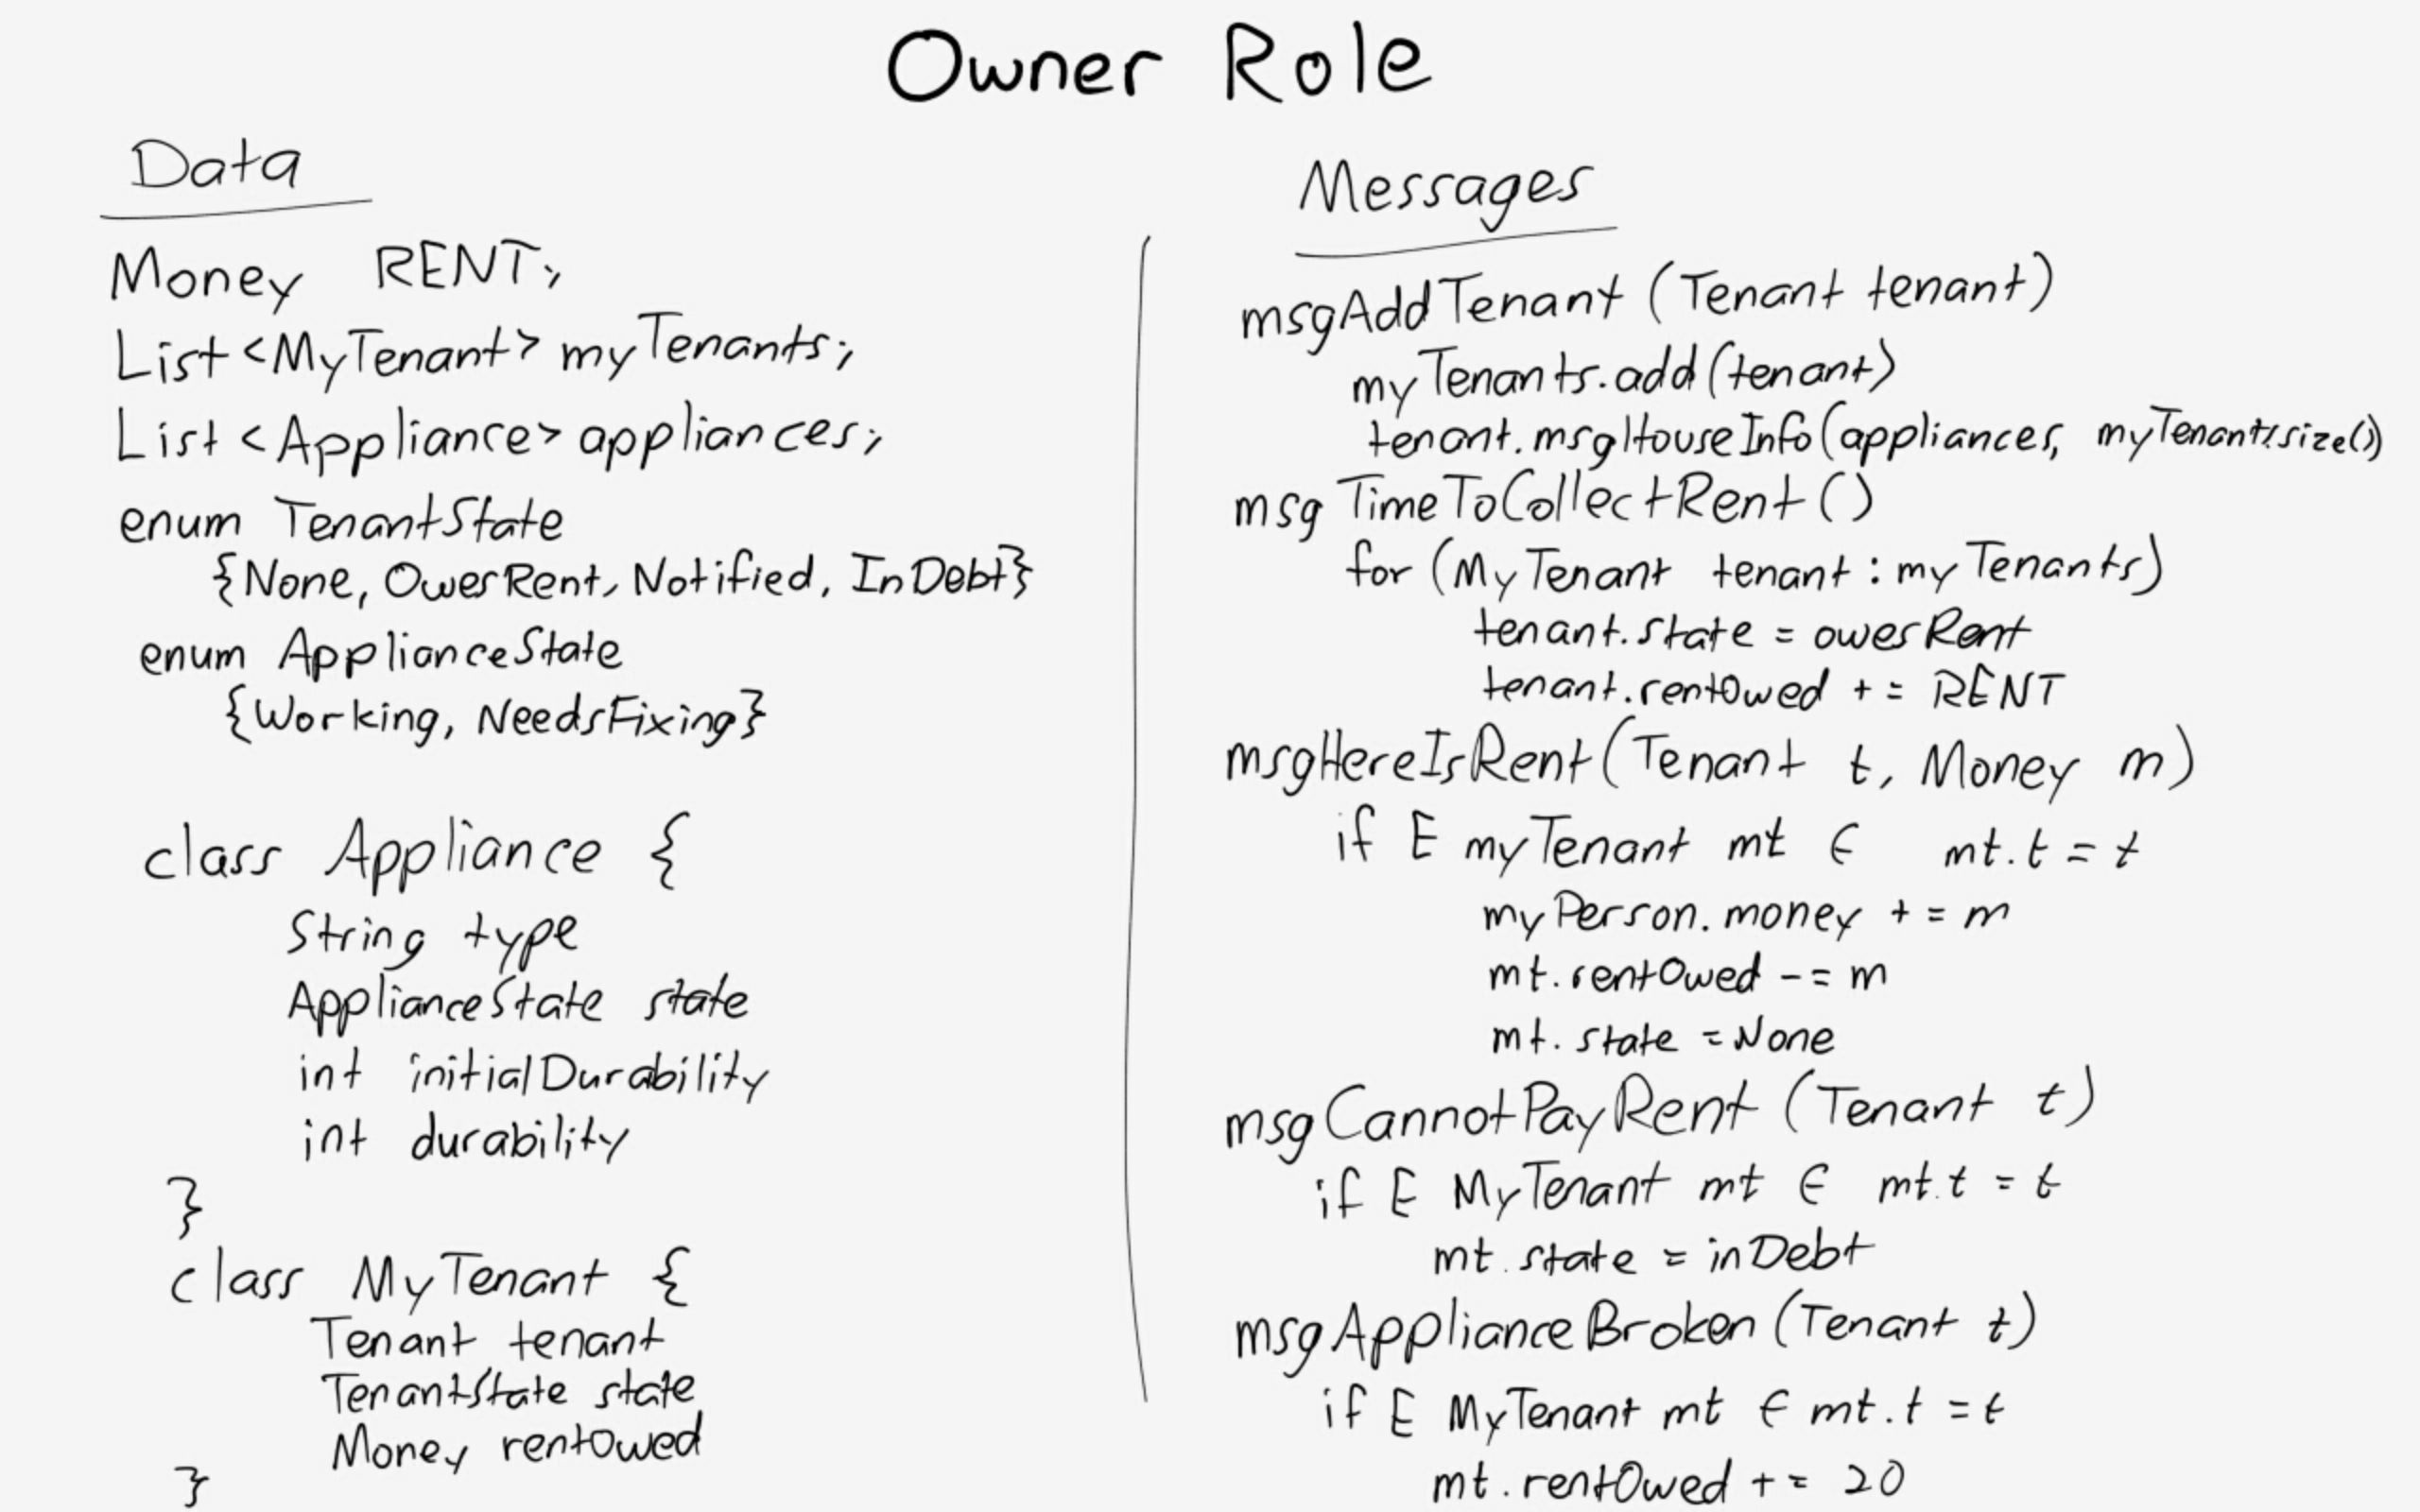 Owner Role
Data
Money RENT;
List <MyTenant> myTenants;
List <Appliance> appliances;
enum TenantState
{None, OwesRent, Notified, InDebt}
enum ApplianceState
{Working, NeedsFixing}
class Appliance {
String type
ApplianceState state
int initialDurability
int durability
}
class MyTenant {
Tenant tenant
TenantState state
Money rentOwed
}
Messages
msgAddTenant (Tenant tenant)
myTenants.add(tenant)
tenant.msgHouseInfo(appliances, myTenants.size())
msgTimeToCollectRent()
for (MyTenant tenant : myTenants)
tenant.state = owesRent
tenant.rentOwed += RENT
msgHereIsRent(Tenant t, Money m)
if E myTenant mt ∈ mt.t = t
myPerson.money += m
mt.rentOwed -= m
mt.state = None
msgCannotPayRent (Tenant t)
if E MyTenant mt ∈ mt.t = t
mt.state = inDebt
msgApplianceBroken (Tenant t)
if E MyTenant mt ∈ mt.t = t
mt.rentOwed += 20